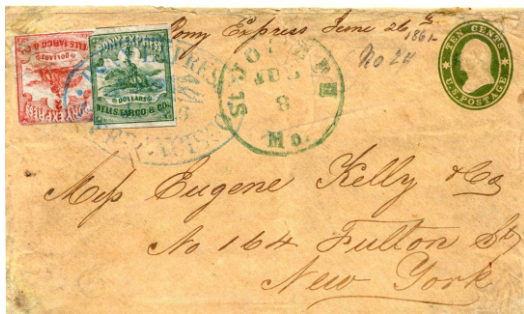 Pony Express June 26th
1861
No 24
TEN CENTS
U.S. POSTAGE
PONY EXPRESS
DOLLARS
WELLS, FARGO & CO.
PONY EXPRESS
DOLLARS
WELLS, FARGO & CO.
JUL
8
Mo.
Mess Eugene Kelly & Co
No 164 Fulton St
New York